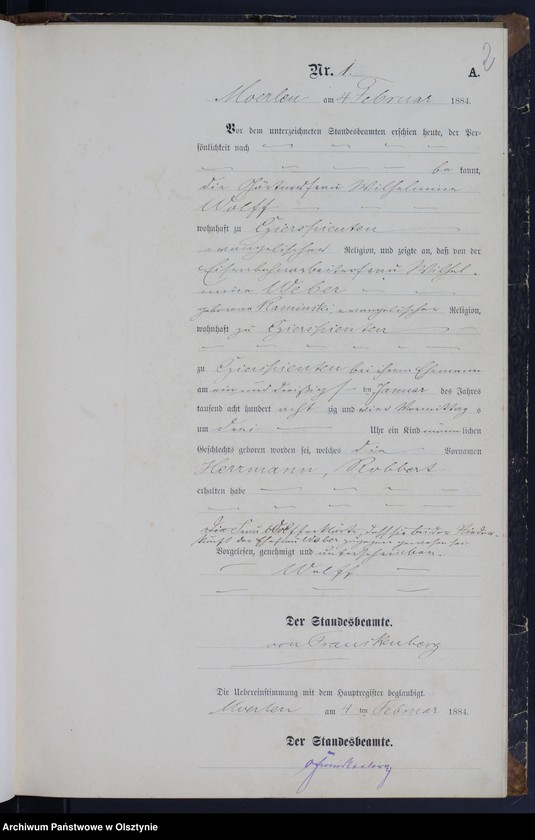 2
Nr. 1.
A.
Moerlen am 4 Februar 1884.
Vor dem unterzeichneten Standesbeamten erschien heute, der Per-
sönlichkeit nach
be kannt,
die Gärtnerfrau Wilhelmine
Wolff
wohnhaft zu
evangelischer Religion, und zeigte an, daß von der
Eisenbahnarbeiterfrau Wilhel-
mine Weber
geborene Kaminski, evangelischer Religion,
wohnhaft zu
zu bei ihrem Ehemann
am ein und dreißig ten Januar des Jahres
tausend acht hundert acht zig und vier Vormittag s
um drei Uhr ein Kind männ lichen
Geschlechts geboren worden sei, welches die Vornamen
Herrmann, Robbert
erhalten habe
Die Frau Wolff erklärte, daß sie bei der Nieder-
kunft der Ehefrau Weber zugegen gewesen sei.
Vorgelesen, genehmigt und unterschrieben.
Wolff
Der Standesbeamte.
von Franckenberg
Die Uebereinstimmung mit dem Hauptregister beglaubigt.
Moerlen am 4 ten Februar 1884.
Der Standesbeamte.
Archiwum Państwowe w Olsztynie